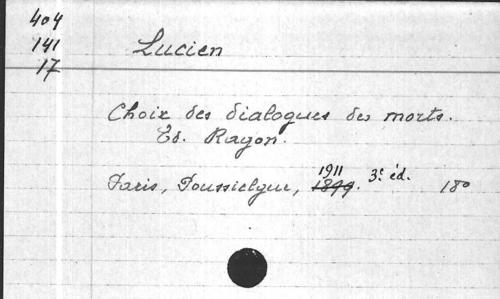 404
141
17
Lucien
Choix des dialogues des morts.
Ed. Ragon.
Paris, Poussielgue, 1899. 1911 3e éd. 18°